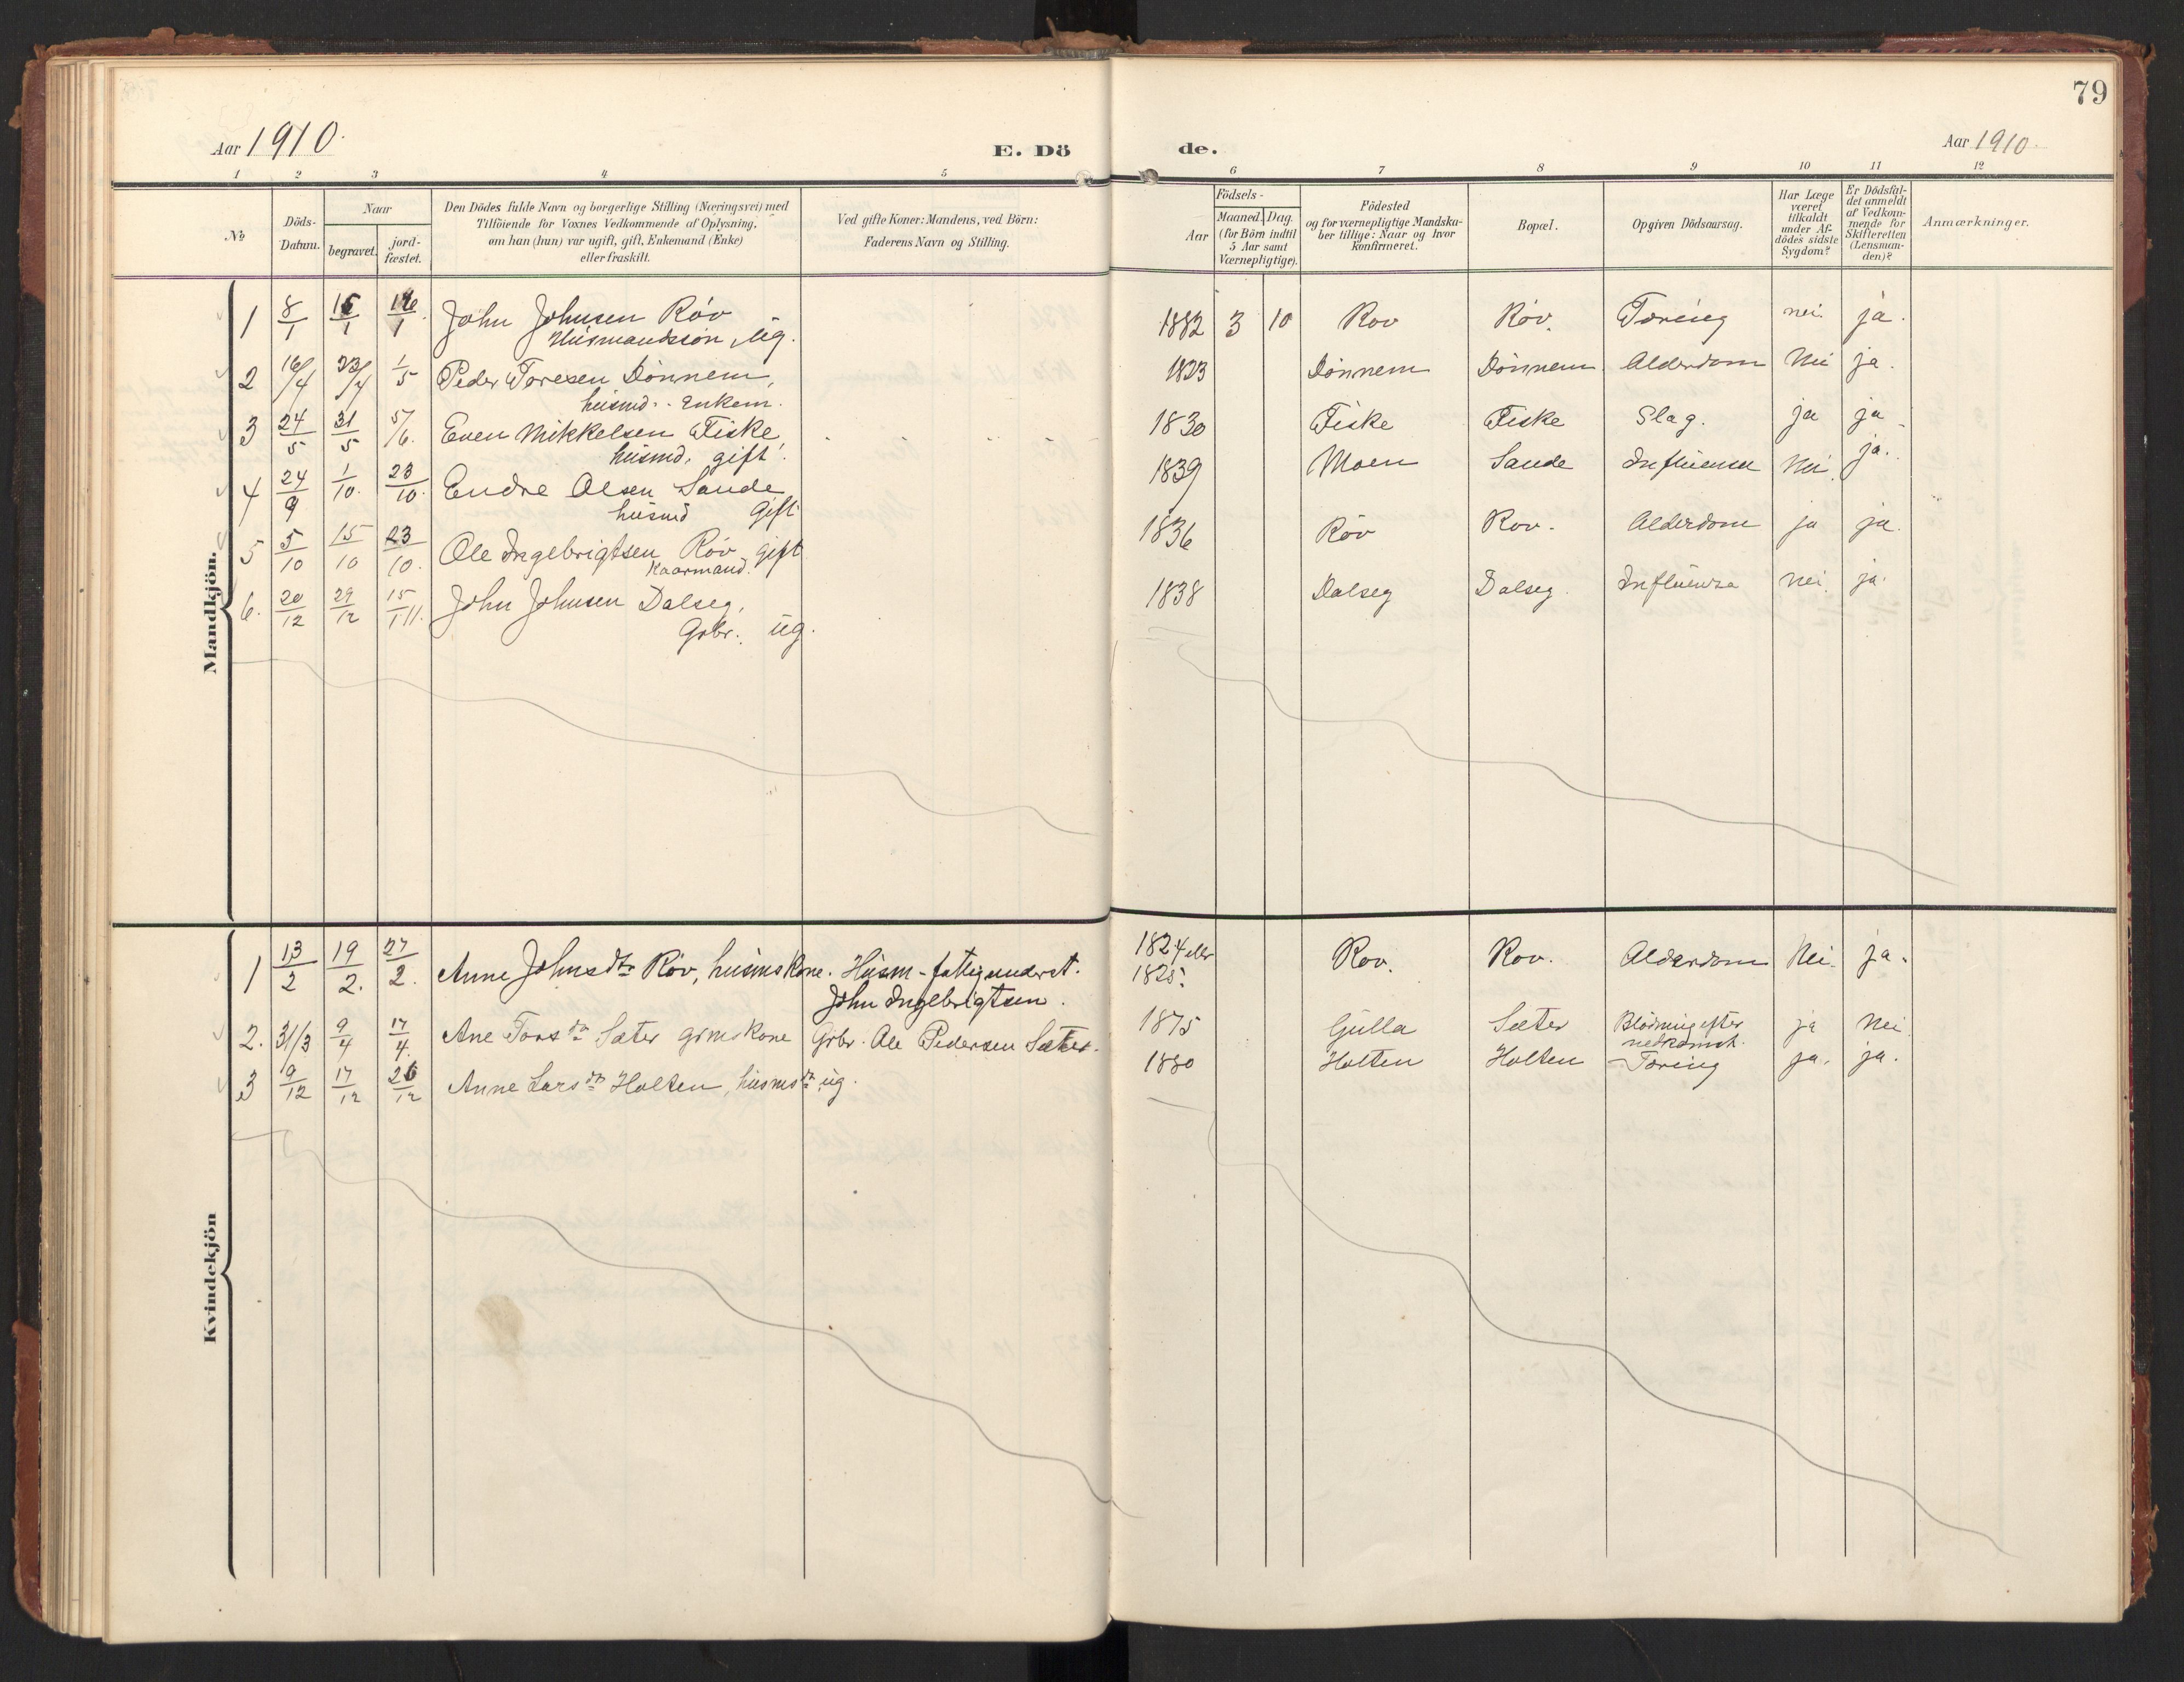 79
Aar 1910.
E. Dö
de.
Aar 1910.
1 2 3 4 5 6 7 8 9 10 11 12
No
Döds-
Datum.
Naar
begravet.
jord-
fæstet.
Den Dödes fulde Navn og borgerlige Stilling (Næringsvei) med
Tilföiende for Voxnes Vedkommende af Oplysning,
om han (hun) var ugift, gift, Enkemand (Enke)
eller fraskilt.
Ved gifte Koner: Mandens, ved Börn:
Faderens Navn og Stilling.
Födsels-
Aar
Maaned.
Dag.
(for Börn indtil
5 Aar samt
Værnepligtige).
Födested
og for værnepligtige Mandska-
ber tillige: Naar og hvor
konfirmeret.
Bopæl.
Opgiven Dödsaarsag.
Har Læge
været
tilkaldt
under Af-
dödes sidste
Sygdom?
Er Dödsfal-
det anmeldt
af Vedkom-
mende for
Skifteretten
(Lensman-
den)?
Anmærkninger.
Mandkjön.
1 8/1 John Johnsen Röv 1882 3 10 Rov Röv. Tæring nei. ja.
Husmandssön, ug.
2 16/4 23/4 1/5 Peder Toresen Dönnem, 1823 Dönnem Dönnem Alderdom Nei ja.
husmd. - Enkem.
3 24/5 31/5 5/6. Even Mikkelsen Fiske, 1830 Fiske Fiske Slag. ja ja
husmd. gift.
4 24/9 1/10. 23/10. Endre Olsen Sande 1839 Moen Sande Influensa Nei. ja.
husmd Gift
5 5/10 15/10 23/10. Ole Ingebrigtsen Röv gift 1836 Röv Rov. Alderdom ja ja.
Kaarmand.
6. 20/12 29/12 15/1 11. John Johnsen Dalseg, 1838 Dalseg Dalseg. Influenza nei. ja.
Grbr. ug.
Kvindekjön
1 13/2 19/2. 27/2. Anne Johnsdtr Röv, husmskone. Husm - fattigunderst. 1824 eller Rov. Rov. Alderdom Nei. ja.
John Ingebrigtsen. 1825.
2. 31/3 9/4 17/4. Ane Torsdtr Sæter grmskone Grbr. Ole Pedersen Sæter. 1875 Gulla Sæter Blödning efter ja Nei.
nedkomst.
3 9/12 17/12 26/12 Anne Larsdtr Holten, husmsdtr ug. 1880 Holten Holten Tæring ja. ja.